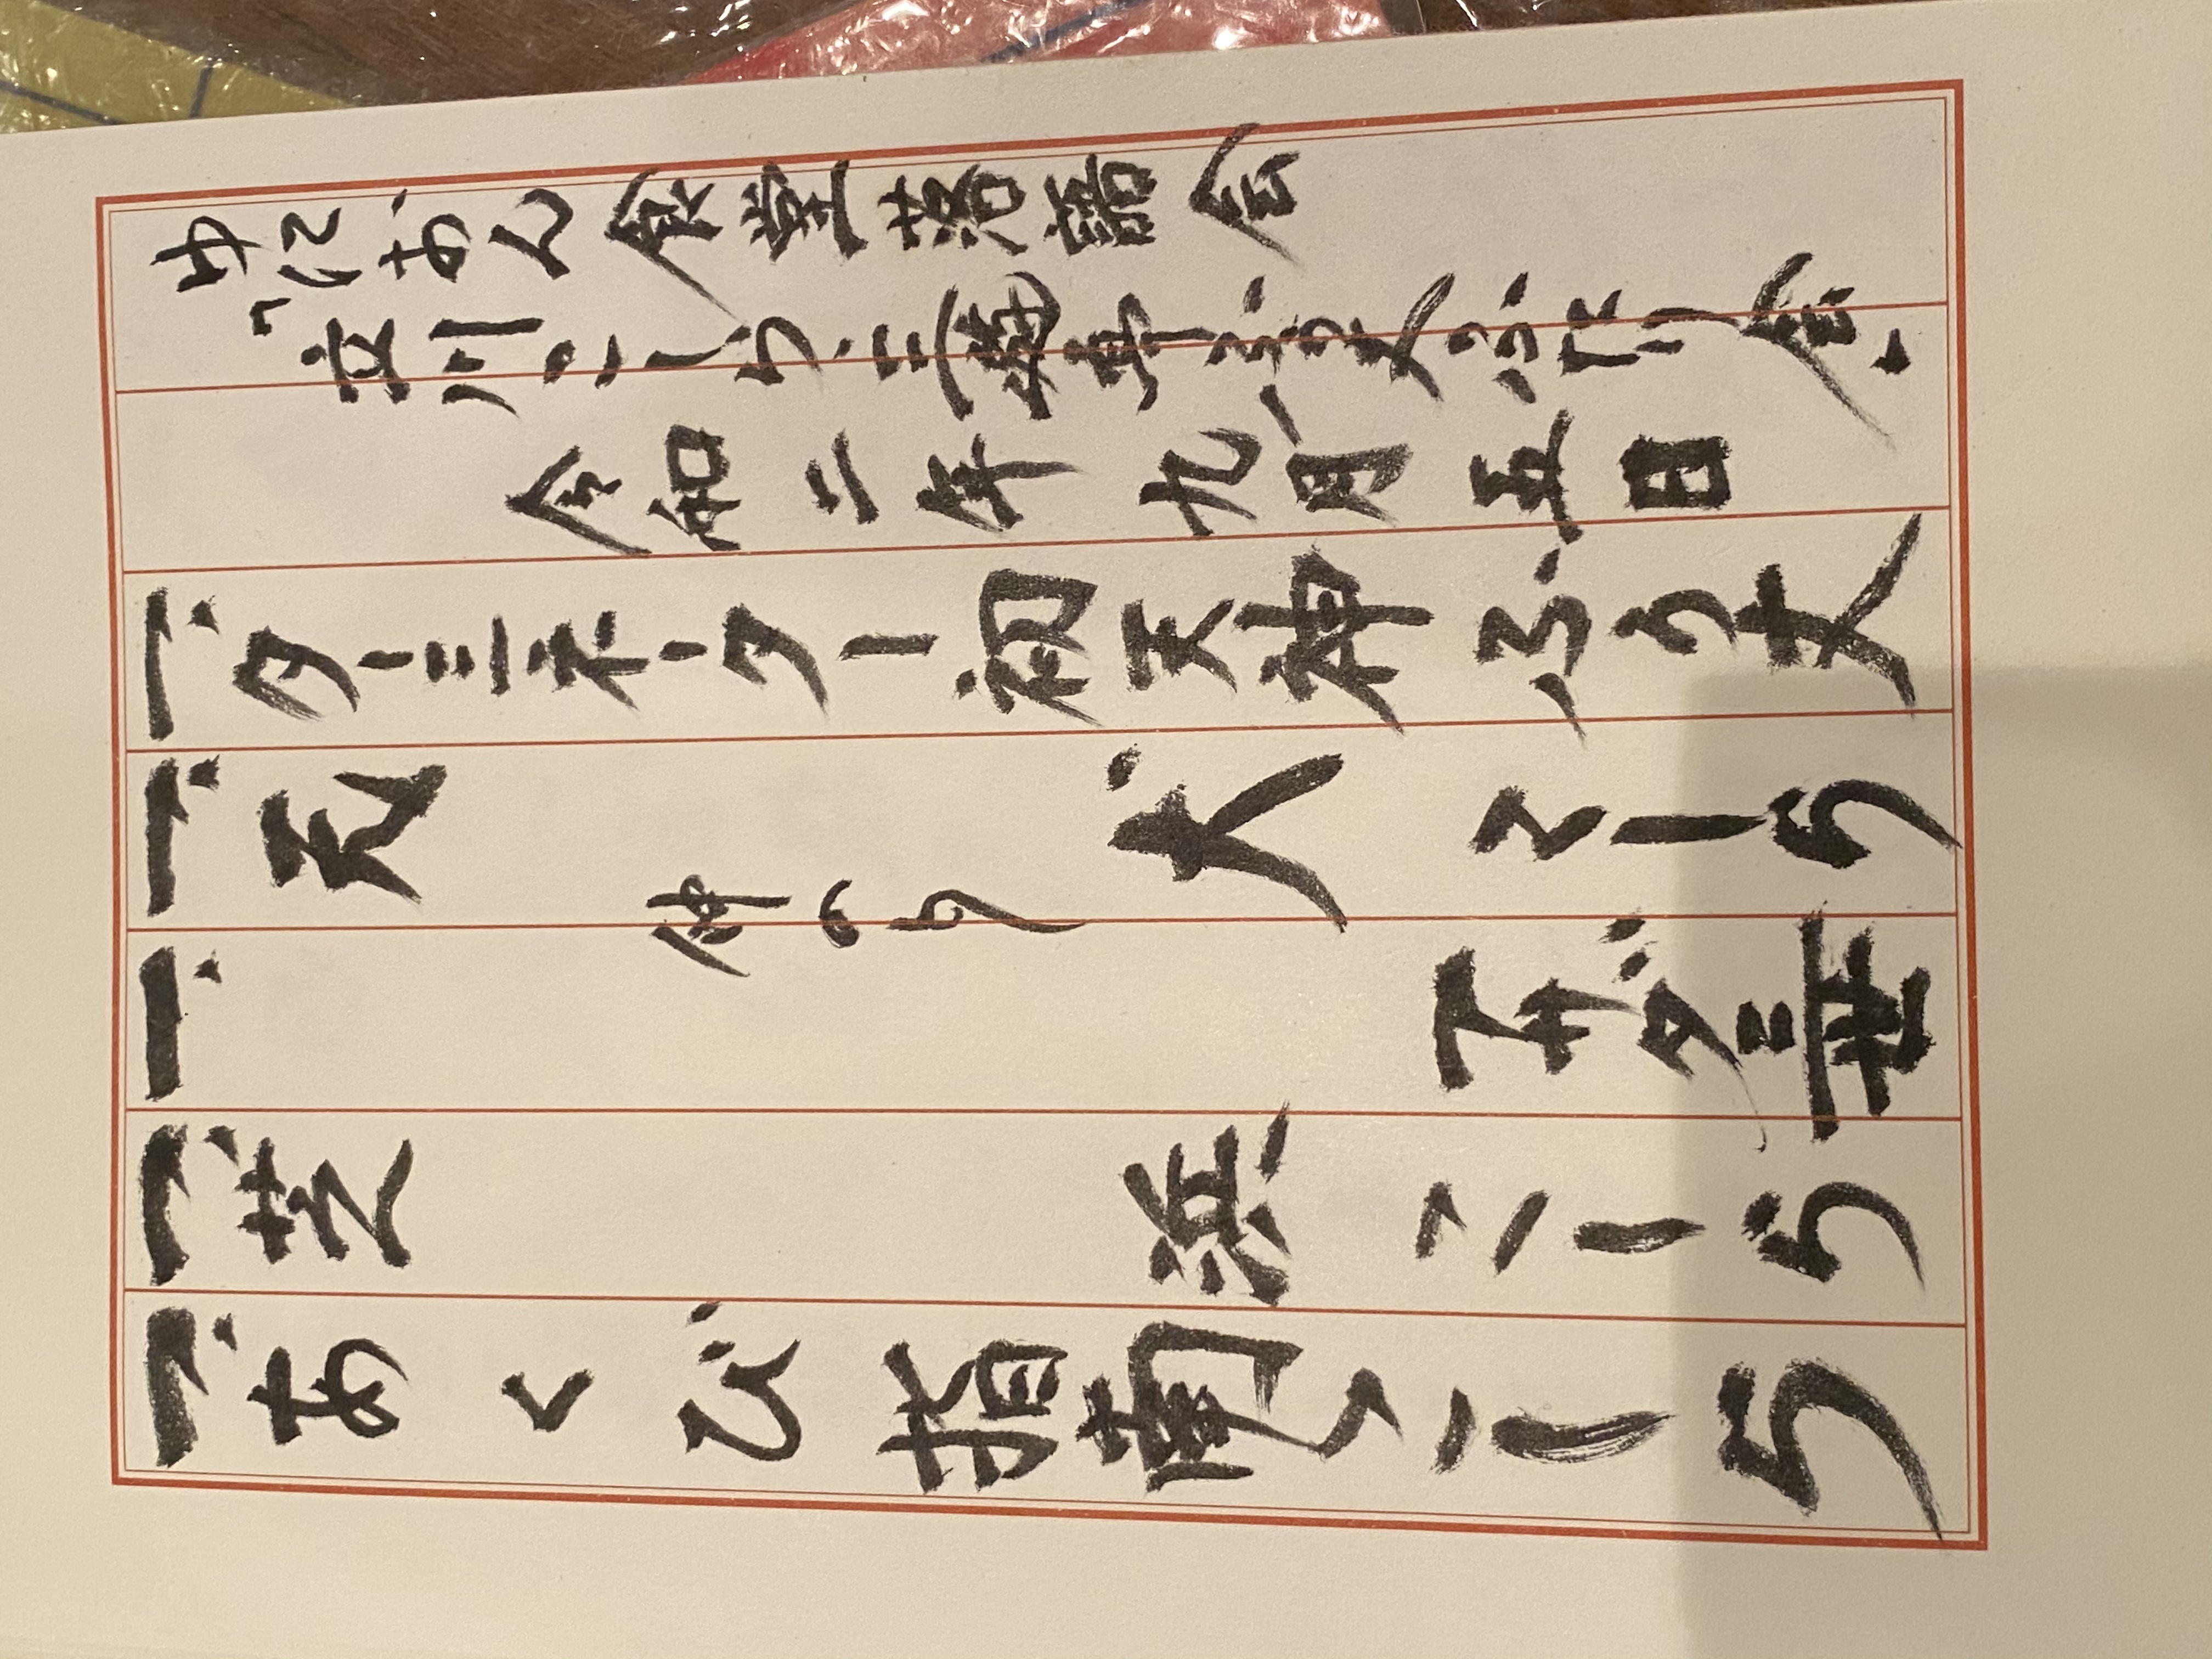 ゆにおん食堂落語会
「立川こしら・三遊亭ふう丈ふたり会」
令和二年九月五日
一、ターミネーター初天神 ふう丈
一、元犬 こしら
仲入り
一、アサダ三世
一、芝浜 こしら
一、あくび指南 こしら